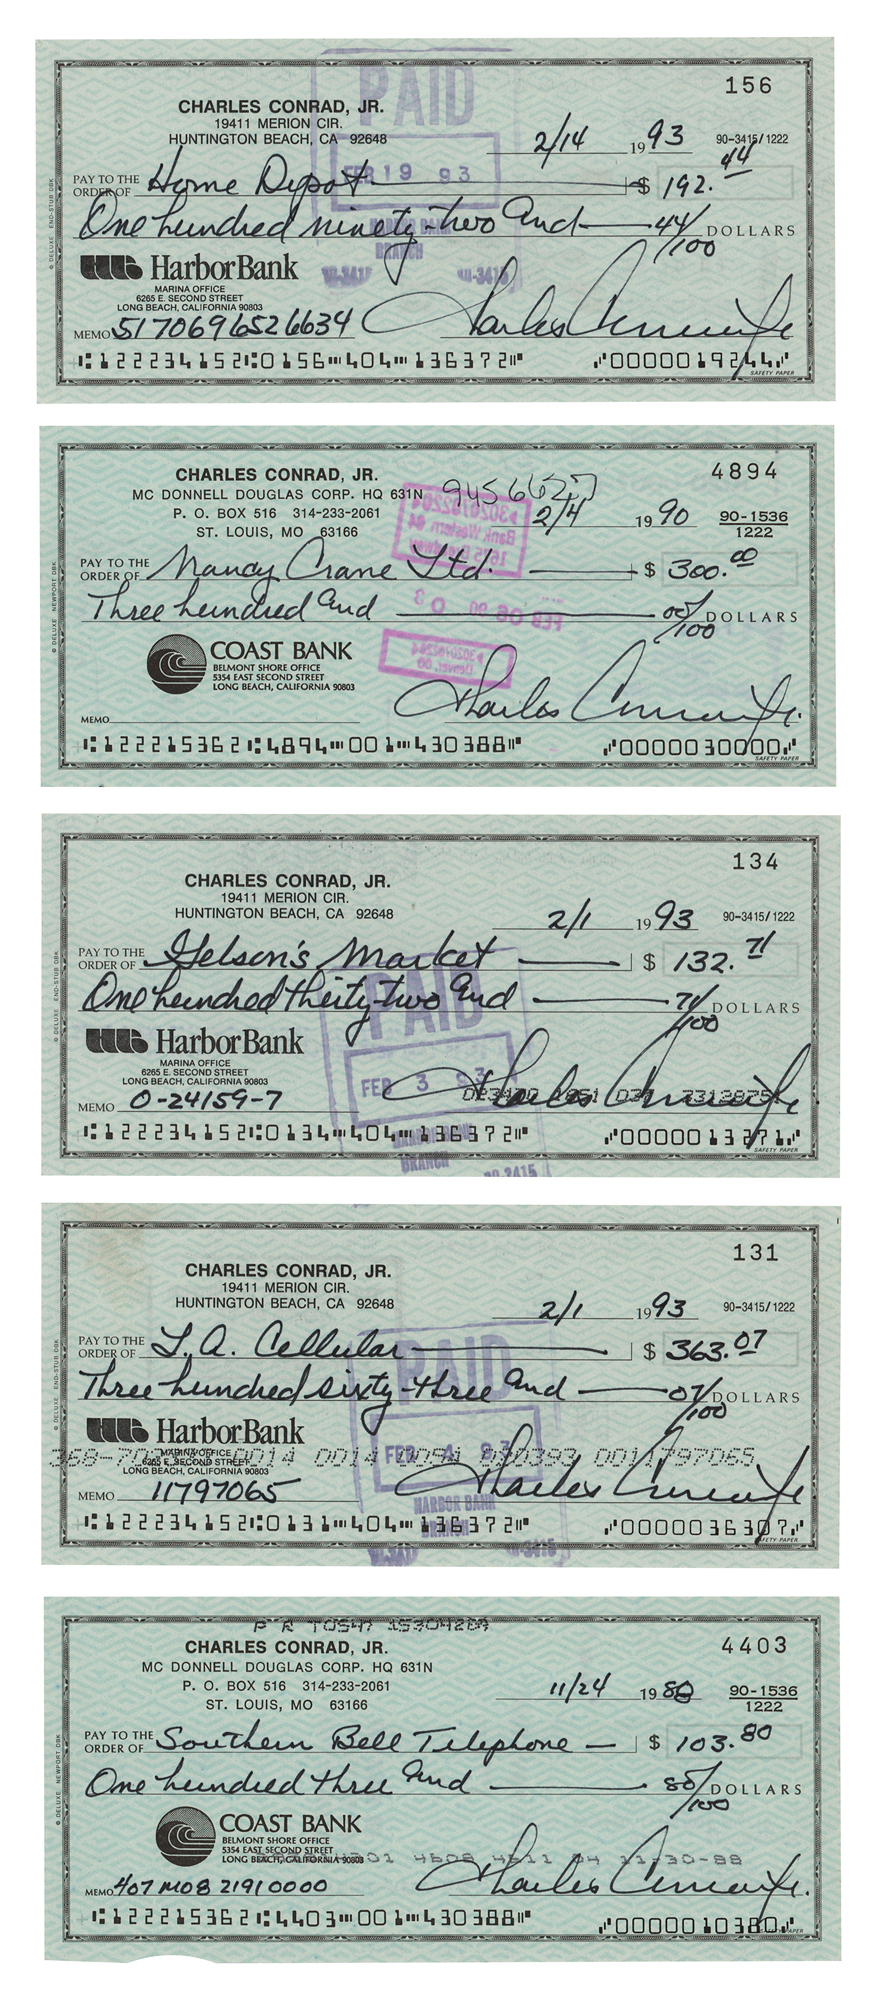 156
CHARLES CONRAD, JR.
19411 MERION CIR.
HUNTINGTON BEACH, CA 92648
2/14 1993 90-3415/1222
PAY TO THE ORDER OF Home Depot $ 192.44
One hundred ninety-two and 44/100 DOLLARS
PAID
FEB 19 93
HARBOR BANK
BRANCH
HarborBank
MARINA OFFICE
6265 E. SECOND STREET
LONG BEACH, CALIFORNIA 90803
MEMO 5170696526634 Charles Conrad Jr.
⑆122234152⑆0156⑈404⑈136372⑈ ⑇0000019244⑇
SAFETY PAPER
© DELUXE END-STUB DBK
4894
CHARLES CONRAD, JR.
MC DONNELL DOUGLAS CORP. HQ 631N
P. O. BOX 516 314-233-2061
ST. LOUIS, MO 63166
2/4 1990 90-1536
1222
PAY TO THE ORDER OF Nancy Crane Ltd. $ 300.00
Three hundred and 00/100 DOLLARS
FEB 06 90
COAST BANK
BELMONT SHORE OFFICE
5354 EAST SECOND STREET
LONG BEACH, CALIFORNIA 90803
MEMO Charles Conrad Jr.
⑆122215362⑆4894⑈001⑈430388⑈ ⑇0000030000⑇
SAFETY PAPER
© DELUXE NEWPORT DBK
134
CHARLES CONRAD, JR.
19411 MERION CIR.
HUNTINGTON BEACH, CA 92648
2/1 1993 90-3415/1222
PAY TO THE ORDER OF Gelson's Market $ 132.71
One hundred thirty-two and 71/100 DOLLARS
PAID
FEB 3 93
HarborBank
MARINA OFFICE
6265 E. SECOND STREET
LONG BEACH, CALIFORNIA 90803
MEMO 0-24159-7 Charles Conrad Jr.
⑆122234152⑆0134⑈404⑈136372⑈ ⑇0000013271⑇
BRANCH
SAFETY PAPER
© DELUXE END-STUB DBK
131
CHARLES CONRAD, JR.
19411 MERION CIR.
HUNTINGTON BEACH, CA 92648
2/1 1993 90-3415/1222
PAY TO THE ORDER OF L.A. Cellular $ 363.07
Three hundred sixty-three and 07/100 DOLLARS
PAID
FEB 4 93
HARBOR BANK
BRANCH
HarborBank
MARINA OFFICE
6265 E. SECOND STREET
LONG BEACH, CALIFORNIA 90803
MEMO 11797065 Charles Conrad Jr.
⑆122234152⑆0131⑈404⑈136372⑈ ⑇0000036307⑇
SAFETY PAPER
© DELUXE END-STUB DBK
4403
CHARLES CONRAD, JR.
MC DONNELL DOUGLAS CORP. HQ 631N
P. O. BOX 516 314-233-2061
ST. LOUIS, MO 63166
11/24 1988 90-1536
1222
PAY TO THE ORDER OF Southern Bell Telephone $ 103.80
One hundred three and 80/100 DOLLARS
COAST BANK
BELMONT SHORE OFFICE
5354 EAST SECOND STREET
LONG BEACH, CALIFORNIA 90803
11-30-88
MEMO 407 M08 21910000 Charles Conrad Jr.
⑆122215362⑆4403⑈001⑈430388⑈ ⑇0000010380⑇
© DELUXE NEWPORT DBK